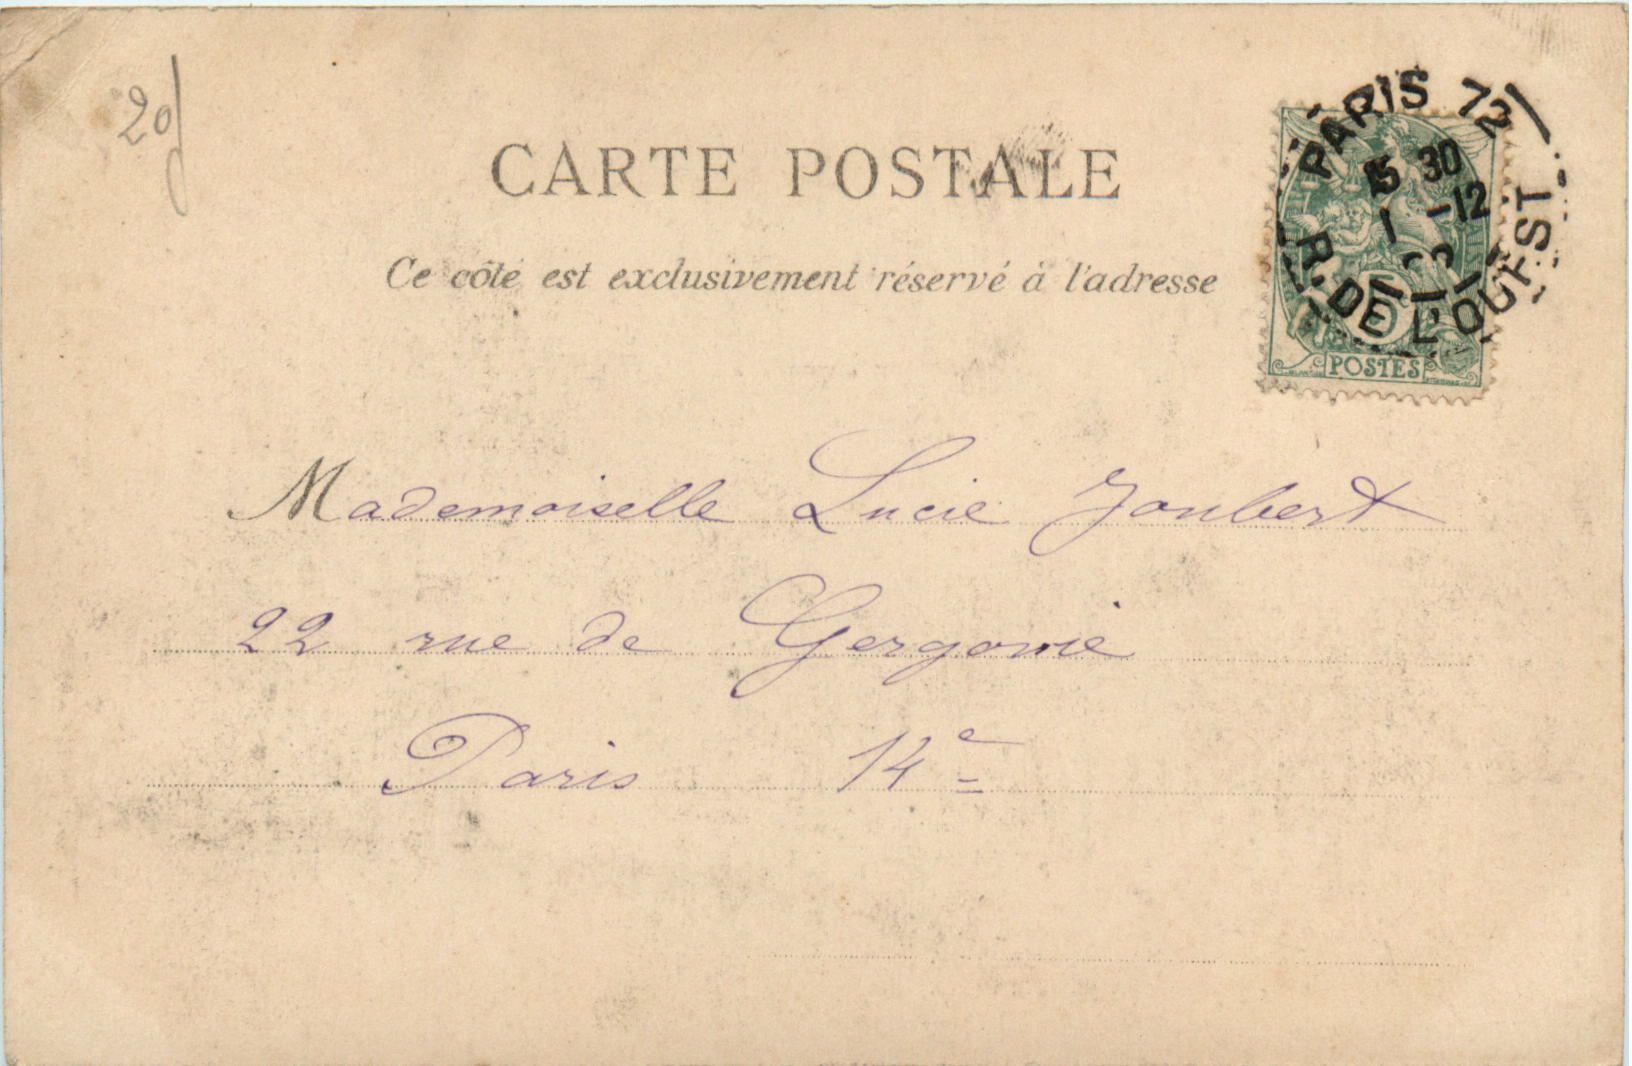 20f
CARTE POSTALE
Ce côté est exclusivement réservé à l'adresse
PARIS 72
15 30
1 -12
R. DE L'OUEST
5
POSTES
Mademoiselle Lucie Joubert
22 rue de Gergovie
Paris 14e